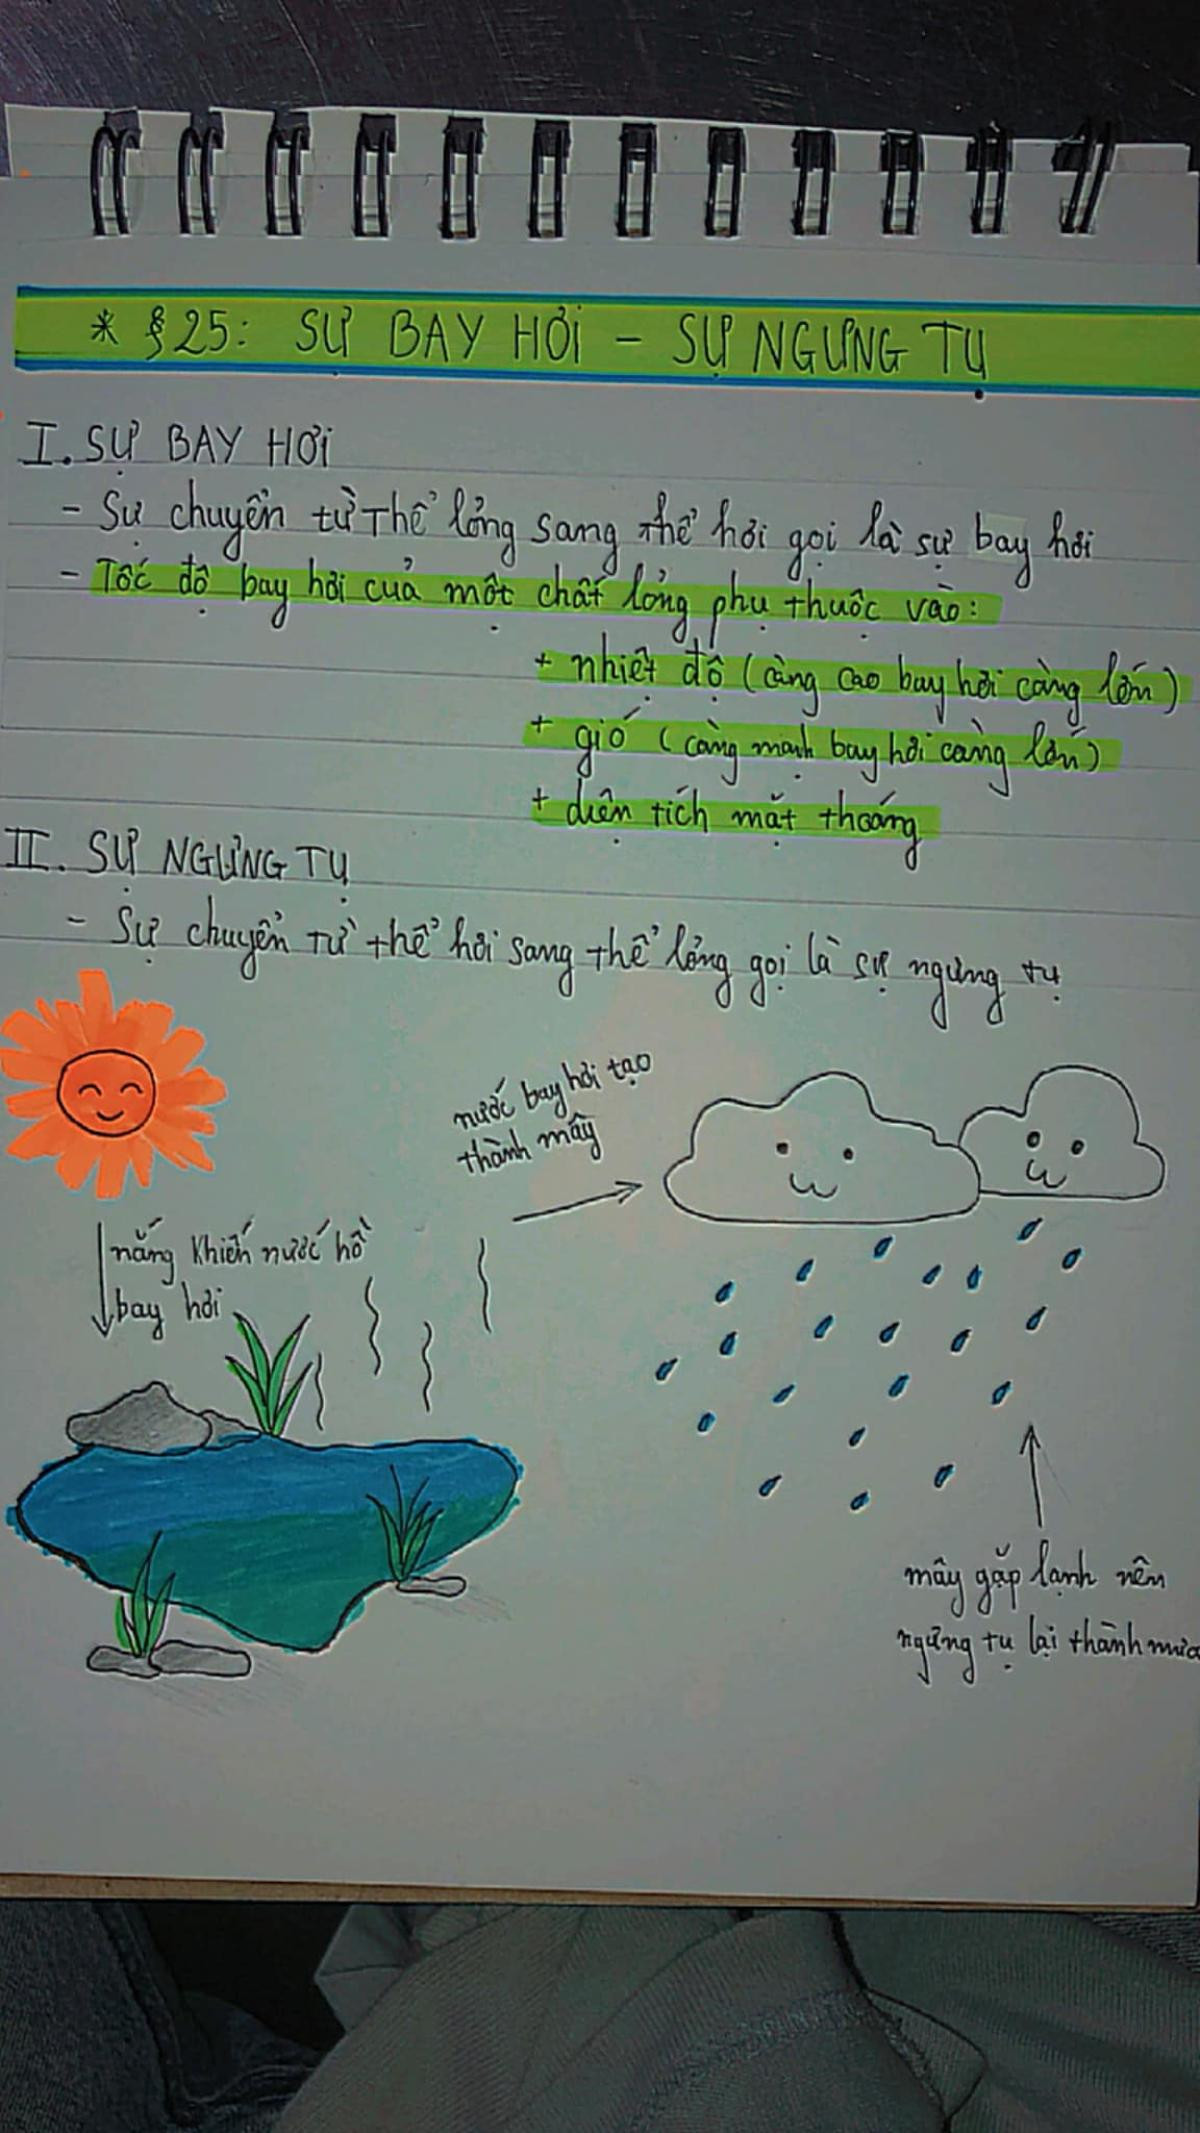 * § 25: SỰ BAY HƠI - SỰ NGƯNG TỤ
I. SỰ BAY HƠI
- Sự chuyển từ thể lỏng sang thể hơi gọi là sự bay hơi
- Tốc độ bay hơi của một chất lỏng phụ thuộc vào:
+ nhiệt độ (càng cao bay hơi càng lớn)
+ gió (càng mạnh bay hơi càng lớn)
+ diện tích mặt thoáng
II. SỰ NGƯNG TỤ
- Sự chuyển từ thể hơi sang thể lỏng gọi là sự ngưng tụ
nước bay hơi tạo
thành mây
nắng khiến nước hồ
bay hơi
mây gặp lạnh nên
ngưng tụ lại thành mưa